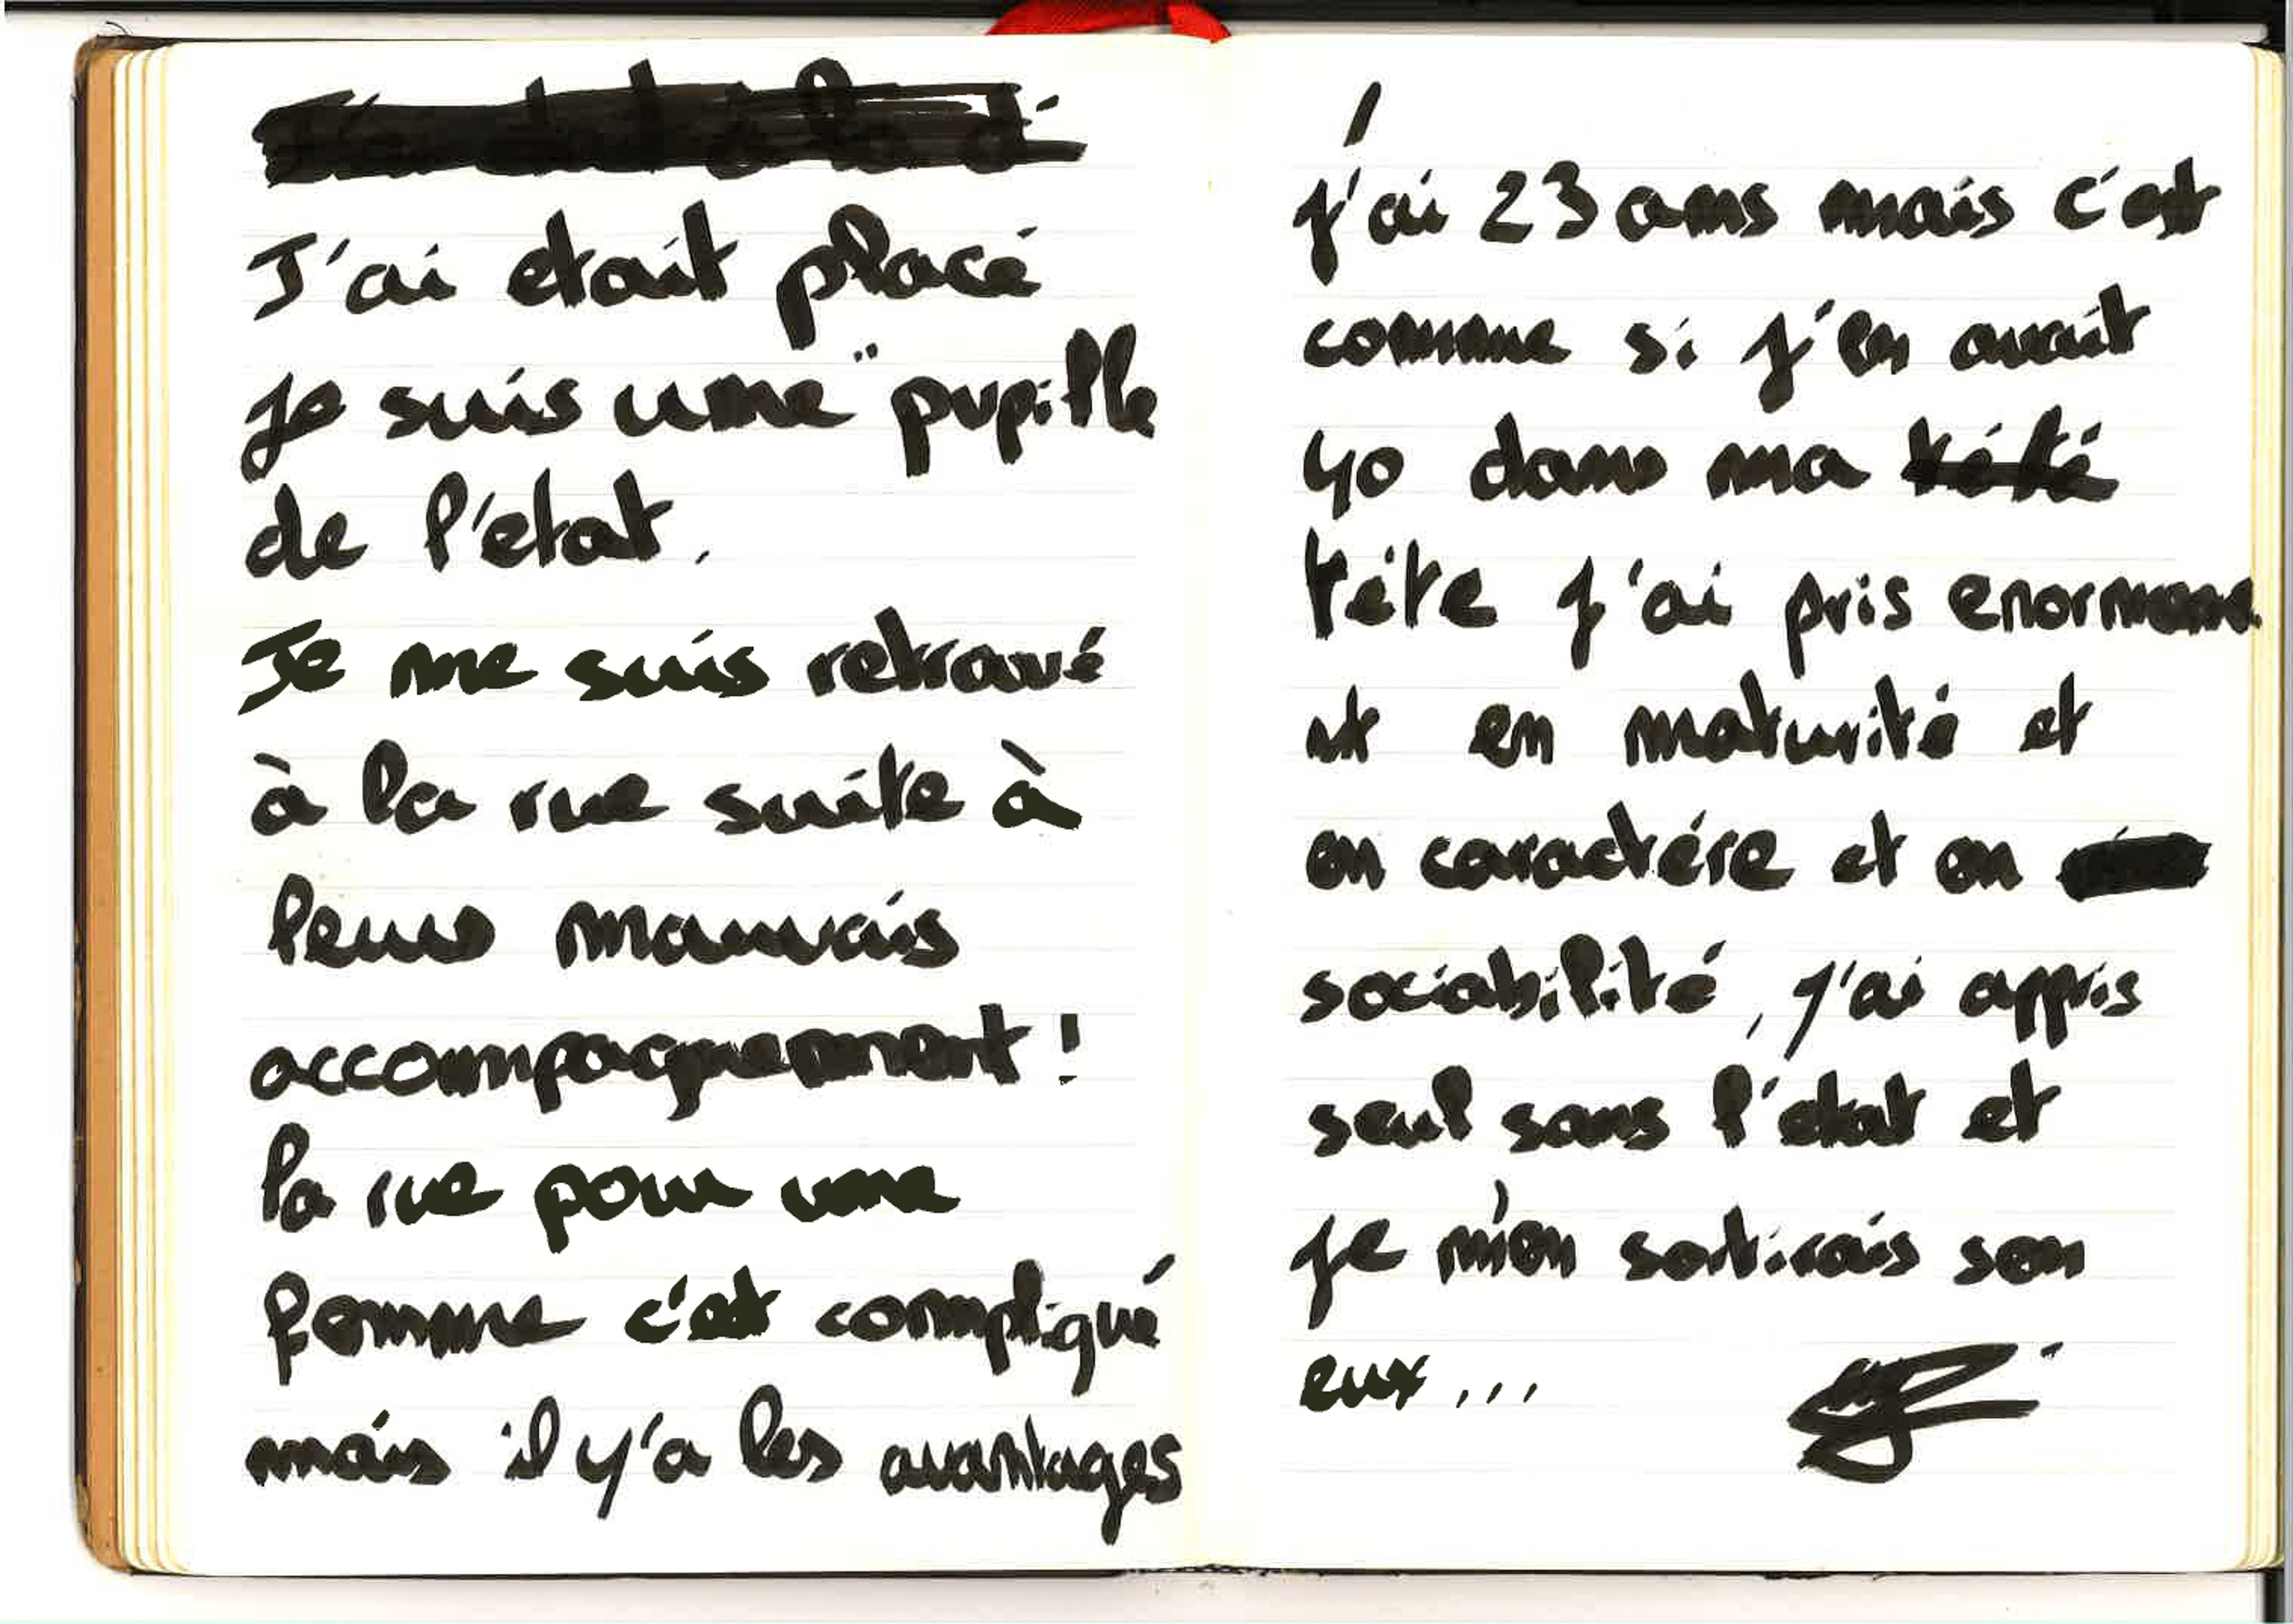 J'ai etait placé
je suis une "pupille
de l'état.
Je me suis retrouvé
à la rue suite à
leurs mauvais
accompagnement !
la rue pour une
femme c'est compliqué
mais il y'a les avantages
j'ai 23 ans mais c'est
comme si j'en avait
40 dans ma tété
téte j'ai pris enormeme
nt en maturité et
en caractére et en
sociabilité, j'ai appris
seul sans l'état et
je m'en sortirais sen
eux ...